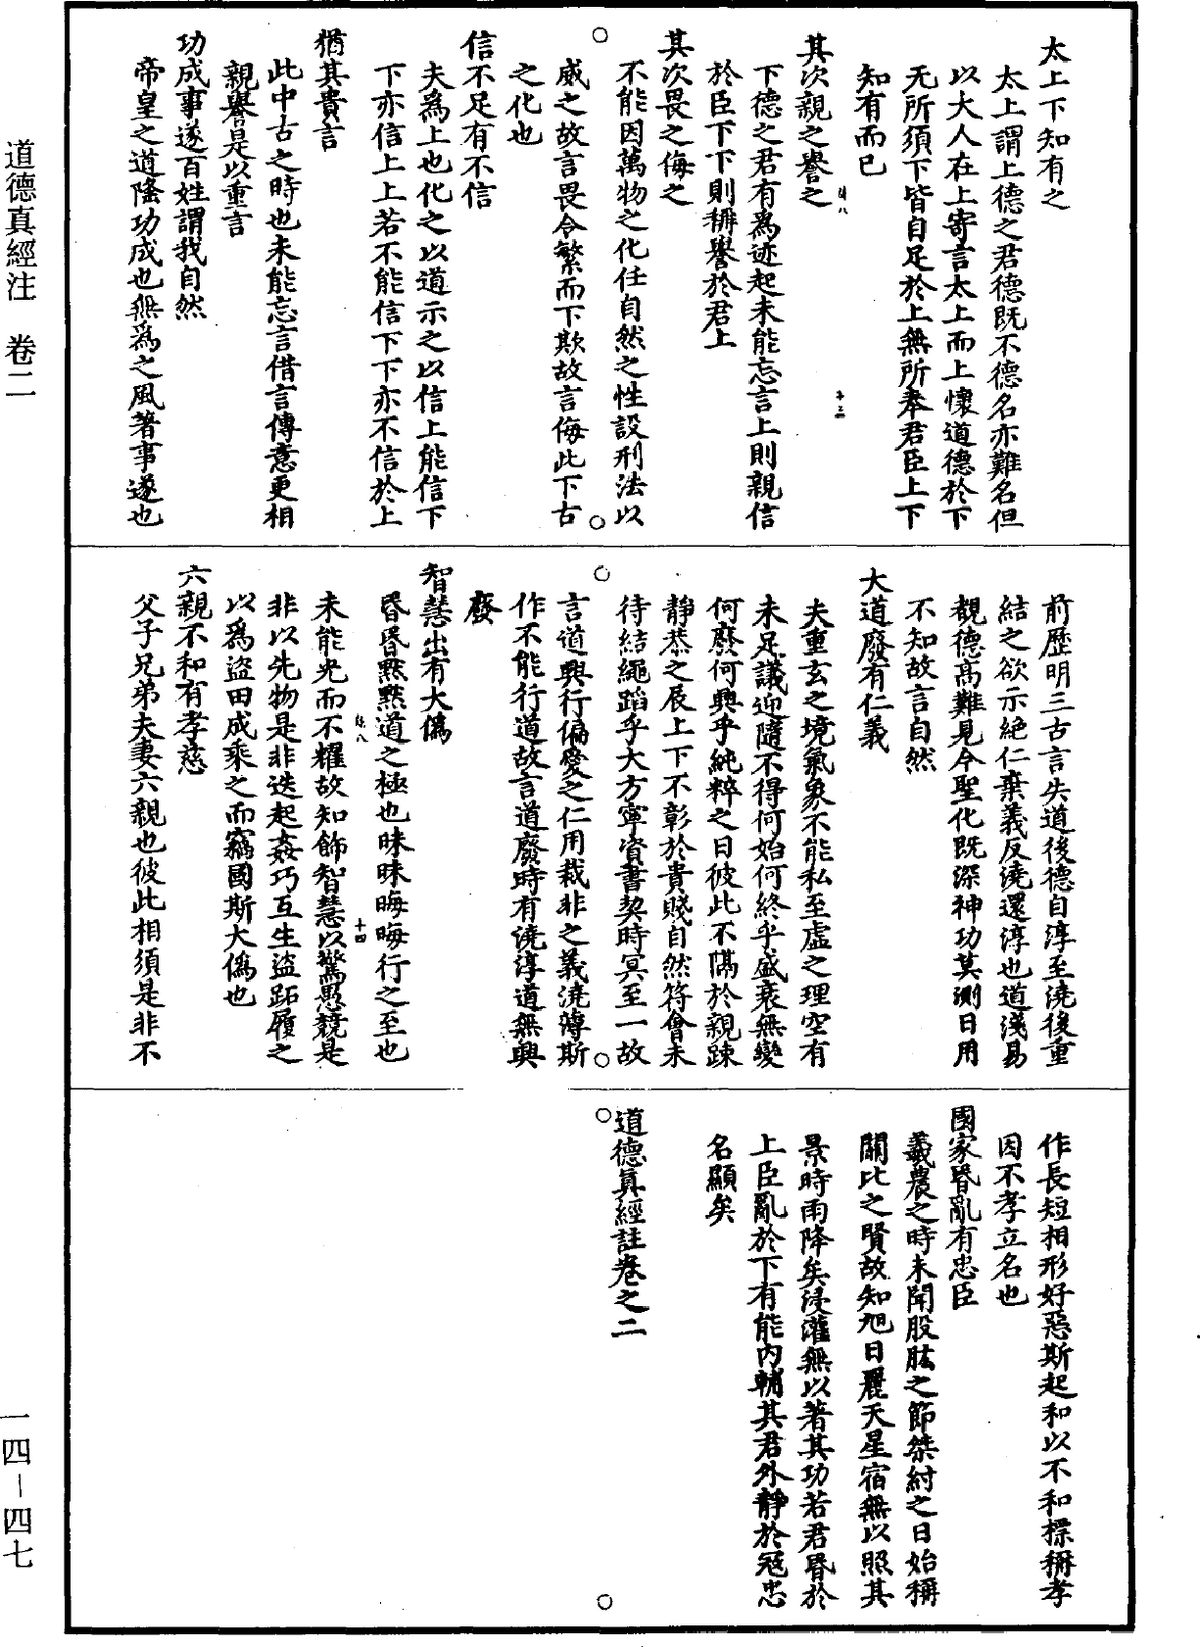 太上下知有之
太上謂上德之君德既不德名亦難名但
以大人在上寄言太上而上懷道德於下
无所須下皆自足於上無所奉君臣上下
知有而已
其次親之譽之
下德之君有爲迹起未能忘言上則親信
於臣下下則稱譽於君上
其次畏之侮之
不能因萬物之化任自然之性設刑法以
威之故言畏令繁而下欺故言侮此下古
之化也
信不足有不信
夫爲上也化之以道示之以信上能信下
下亦信上上若不能信下下亦不信於上
猶其貴言
此中古之時也未能忘言借言傳意更相
親譽是以重言
功成事遂百姓謂我自然
帝皇之道隆功成也無爲之風著事遂也
前歷明三古言失道後德自淳至澆後重
結之欲示絕仁棄義反澆還淳也道淺易
覩德高難見今聖化既深神功莫測日用
不知故言自然
大道廢有仁義
夫重玄之境氣象不能私至虛之理空有
未足議迎隨不得何始何終乎盛衰無變
何廢何興乎純粹之日彼此不隔於親踈
靜恭之辰上下不彰於貴賤自然符會未
待結繩蹈乎大方寧資書契時冥至一故
言道興行偏愛之仁用裁非之義澆薄斯
作不能行道故言道廢時有澆淳道無興
廢
智慧出有大僞
昏昏黙黙道之極也昧昧晦晦行之至也
未能光而不耀故知飾智慧以驚愚競是
非以先物是非迭起姦巧互生盜跖履之
以爲盜田成乘之而竊國斯大僞也
六親不和有孝慈
父子兄弟夫妻六親也彼此相須是非不
作長短相形好惡斯起和以不和標稱孝
因不孝立名也
國家昏亂有忠臣
羲農之時未聞股肱之節桀紂之日始稱
關比之賢故知旭日麗天星宿無以照其
景時雨降矣浸灌無以著其功若君昏於
上臣亂於下有能內輔其君外靜於冦忠
名顯矣
道德真經註卷之二
道德真經注　卷二
一四－四七